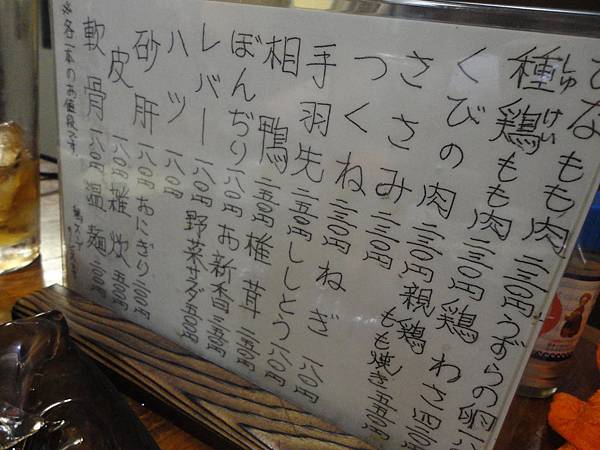 ひなもも肉 二三〇円 うずらの卵
種鶏もも肉 二三〇円 鶏わさ 四二〇円
しゅ けい
くびの肉 二三〇円 親鶏もも焼き 五五〇円
ささみ 二三〇円
つくね 二三〇円 ねぎ 一八〇円
手羽先 二五〇円 ししとう 一八〇円
相鴨 二五〇円 椎茸 二五〇円
ぼんぢり 一八〇円 お新香 三五〇円
レバー 一八〇円 野菜サラダ 五〇〇円
ハツ 一八〇円
砂肝 一八〇円 おにぎり 二〇〇円
皮 一八〇円 雑炊 五〇〇円
軟骨 一八〇円 温麺 六〇〇円
※各一本のお値段です。